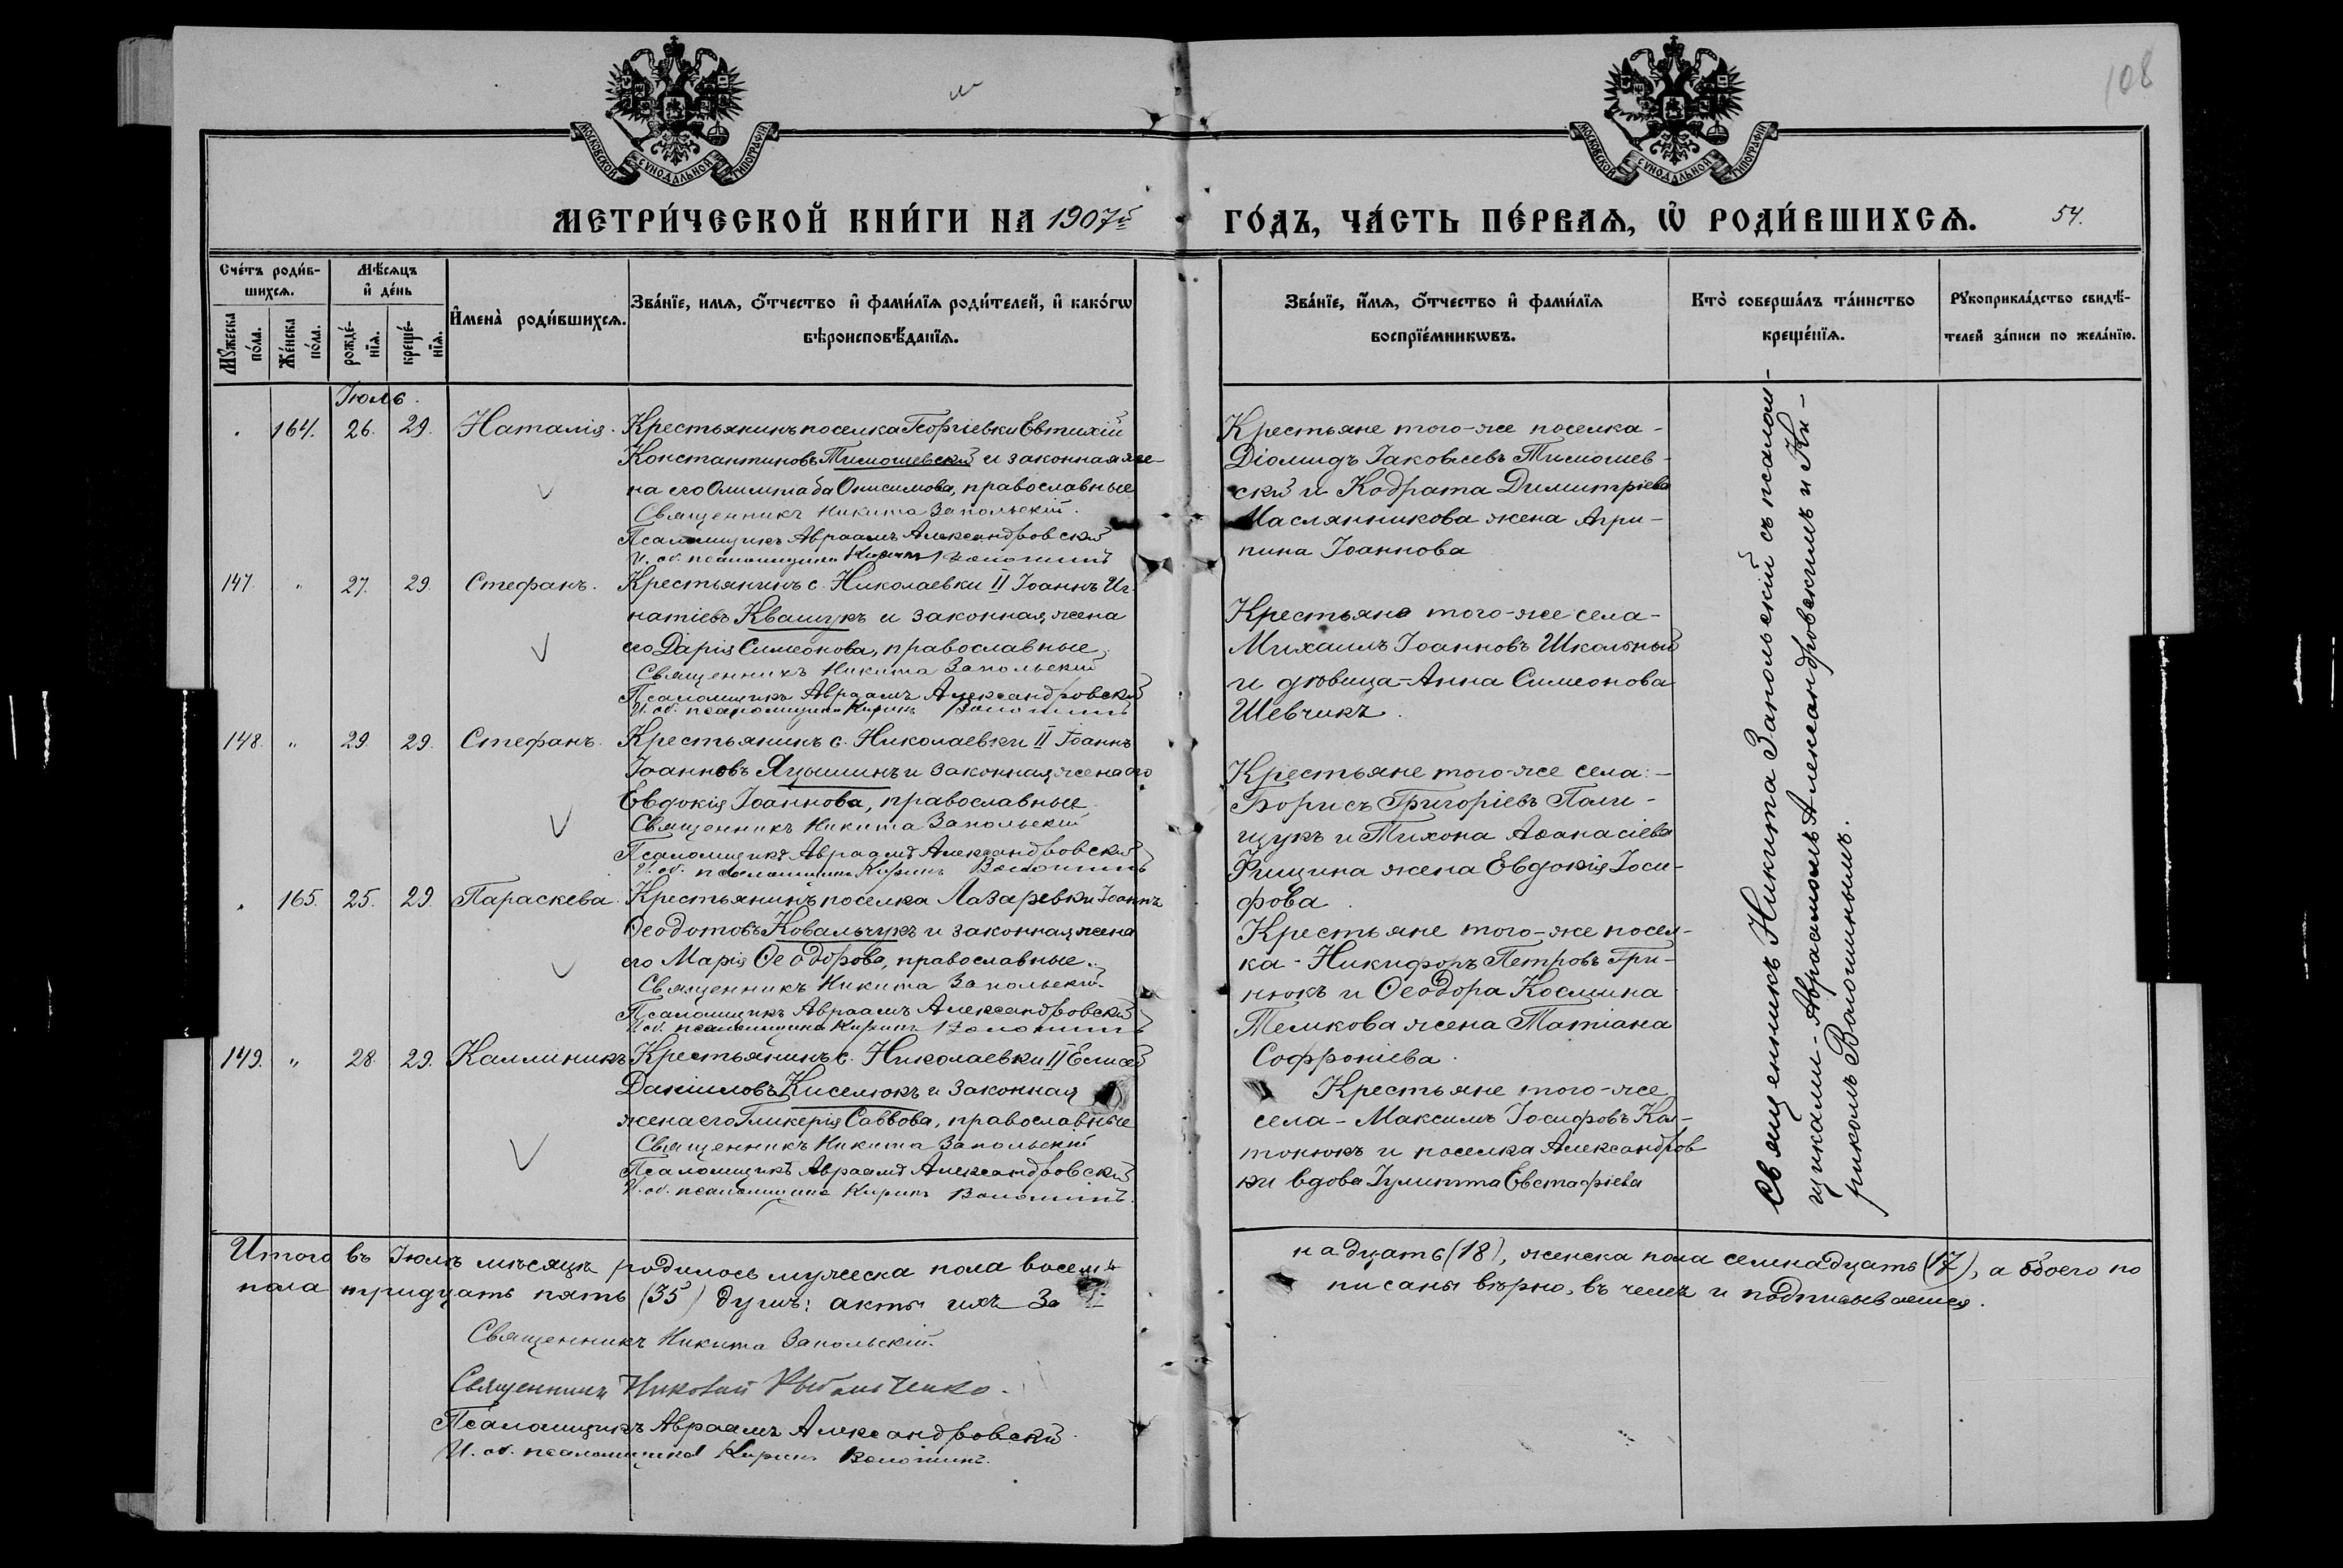 108
МОСКОВСКОЙ СѴНОДАЛЬНОЙ ТИПОГРАФІИ
МОСКОВСКОЙ СѴНОДАЛЬНОЙ ТИПОГРАФІИ
МЕТРИ́ЧЕСКОЙ КНИ́ГИ НА 1907й
ГО́ДЪ, ЧА́СТЬ ПЕ́РВАѦ, Ѡ҆ РОДИ́ВШИХСѦ. 54.
Сче́тъ роди́в-
шихсѧ.
Мѣ́сѧцъ
и҆ де́нь
Мꙋ́жеска
по́ла.
Же́нска
по́ла.
рожде́-
нїѧ.
креще́-
нїѧ.
И҆мена̀ роди́вшихсѧ.
Зва́нїе, имѧ, ѻ҆́тчество и҆ фами́лїѧ роди́телей, и҆ како́гѡ
вѣроисповѣ́данїѧ.
Зва́нїе, и҆́мѧ, ѻ҆́тчество и҆ фами́лїѧ
воспрїе́мникѡвъ.
Кто̀ соверша́лъ та́инство
креще́нїѧ.
Рꙋкоприкла́дство свидѣ́-
телей за́писи по жела́нїю.
Іюль.
164. 26. 29. Наталія. Крестьянинъ поселка Георгіевки Евтихій
Константиновъ Тимошевскій и законная же-
на его Олимпіада Онисимова, православные
Священникъ Никита Запольскій.
Псаломщикъ Авраамъ Александровскій
И. об. псаломщика Киріакъ Волошинъ
Крестьяне того-же поселка -
Діомидъ Іаковлевъ Тимошев-
скій и Кодрата Димитріева
Маслянникова жена Агри-
пина Іоаннова
147. " 27. 29. Стефанъ. Крестьянинъ с. Николаевки II Іоаннъ Иг-
натіевъ Квашукъ и законная жена
его Дарія Симеонова, православные
Священникъ Никита Запольскій
Псаломщикъ Авраамъ Александровскій
И. об. псаломщика Волошинъ
Крестьяне того-же села -
Михаилъ Іоанновъ Школьный
и дѣвица - Анна Симеонова
Шевчикъ.
148. " 29. 29. Стефанъ. Крестьянинъ с. Николаевки II Іоаннъ
Іоанновъ Яцышинъ и законная жена его
Евдокія Іоаннова, православные
Священникъ Никита Запольскій
Псаломщикъ Авраамъ Александровскій
И. об. псаломщика Волошинъ
Крестьяне того-же села: -
Борисъ Григоріевъ Поли-
щукъ и Тихона Аѳанасіева
Фищина жена Евдокія Іоси-
фова.
165. 25. 29. Параскева. Крестьянинъ поселка Лазаревки Іоаннъ
Ѳеодотовъ Ковальчукъ и законная жена
его Марія Ѳеодорова, православные.
Священникъ Никита Запольскій.
Псаломщикъ Авраамъ Александровскій
И. об. псаломщика Волошинъ
Крестьяне того-же посел-
ка - Никифоръ Петровъ Гри-
нюкъ и Ѳеодора Космина
Темкова жена Татіана
Софроніева.
149. " 28. 29. Каллиникъ Крестьянинъ с. Николаевки II Елисей
Даніиловъ Киселюкъ и законная
жена его Гликерія Саввова, православные
Священникъ Никита Запольскій
Псаломщикъ Авраамъ Александровскій
И. об. псаломщика Волошинъ.
Крестьяне того-же
села - Максимъ Іосифовъ
и поселка Александров
ки вдова Іулитта Евстафіева
Священникъ Никита Запольскій съ псалом-
щиками - Авраамомъ Александровскимъ и Ки-
рикомъ Волошинымъ.
Итого въ Іюлѣ мѣсяцѣ родилось мужеска пола восем-
надцать (18), женска пола семнадцать (17), а обоего по
пола тридцать пять (35) душъ: акты ихъ за
писаны вѣрно, въ чемъ и подписываемся.
Священникъ Никита Запольскій.
Священникъ Николай
Псаломщикъ Авраамъ Александровскій
И. об. псаломщика Волошинъ.